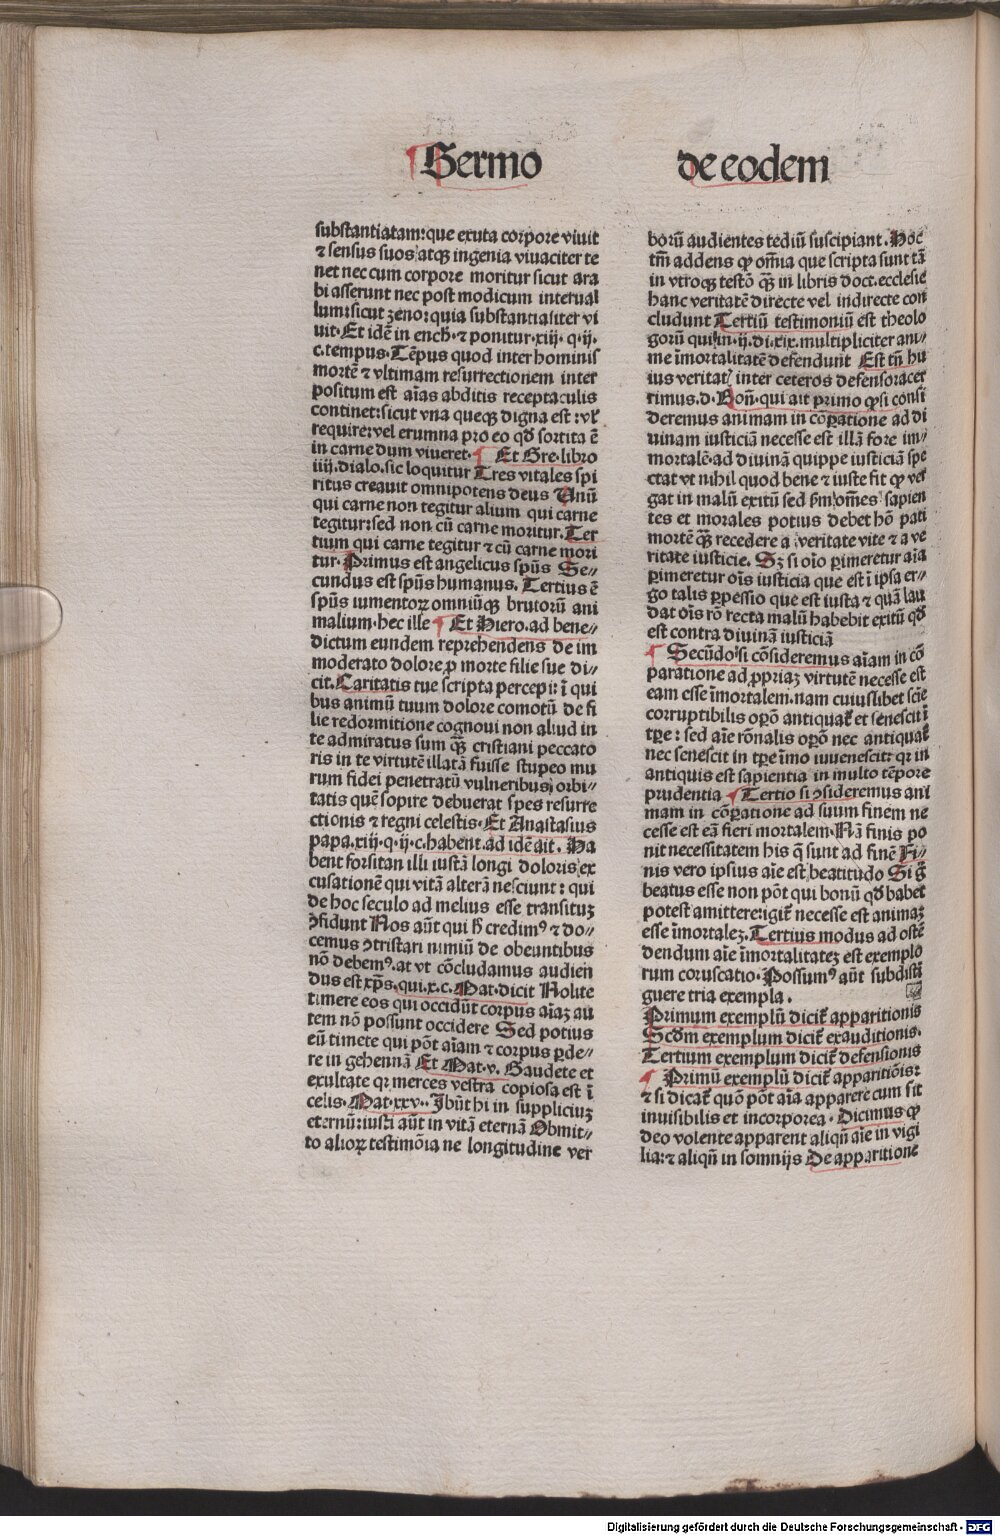 Sermo
de eodem
substantiatam: que exuta corpore viuit
⁊ sensus suos atqꝫ ingenia viuaciter te
net nec cum corpore moritur sicut ara
bi asserunt nec post modicum interual
lum: sicut zeno: quia substantialiter vi
uit. Et idē in ench. ⁊ ponitur. xiij. q. ij.
c. tempus. Tēpus quod inter hominis
mortē ⁊ vltimam resurrectionem inter
positum est aīas abditis receptaculis
continet: sicut vna queqꝫ digna est: vł
require: vel erumna pro eo qď sortita ē
in carne dum viueret. ¶ Et Gre. libro
iiij. dialo. sic loquitur Tres vitales spi
ritus creauit omnipotens deus Unū
qui carne non tegitur alium qui carne
tegitur: sed non cū carne moritur. Ter
tium qui carne tegitur ⁊ cū carne mori
tur. Primus est angelicus spūs Se⸗
cundus est spūs humanus. Tertius ē
spūs iumentoꝝ omniūqꝫ brutorū ani
malium. hec ille ¶ Et Hiero. ad bene⸗
dictum eundem reprehendens de im
moderato dolore ꝓ morte filie sue di⸗
cit. Caritatis tue scripta percepi: ī qui
bus animū tuum dolore comotū de fi
lie redormitione cognoui non aliud in
te admiratus sum qꝫ̄ cristiani peccato
ris in te virtutē illatā fuisse stupeo mu
rum fidei penetratū vulneribus orbi⸗
tatis quē sopire debuerat spes resurre
ctionis ⁊ regni celestis. Et Anastasius
papa. xiij. q. ij. c. habent. ad idē ait. Ha
bent forsitan illi iustā longi doloris ex
cusationē qui vitā alterā nesciunt: qui
de hoc seculo ad melius esse transituꝫ
ꝯfidunt Nos aūt qui h̄ credimꝰ ⁊ do⸗
cemus ꝯtristari nimiū de obeuntibus
nō debemꝰ. at vt cōcludamus audien
dus est xp̄s. qui. x. c. Mat. dicit Nolite
timere eos qui occidūt corpus aīaꝫ au
tem nō possunt occidere Sed potius
eū timete qui pōt aīam ⁊ corpus ꝑde⸗
re in gehennā Et Mat. v. Gaudete et
exultate qꝛ merces vestra copiosa est ī
celis. Mat. xxv. Ibūt hi in suppliciuꝫ
eternū: iusti aūt in vitā eternā Obmit⸗
to alioꝝ testimōia ne longitudine ver
borū audientes tediū suscipiant. Hoc
tm̄ addens ꝙ om̄ia que scripta sunt tā
in vtroqꝫ testō qꝫ̄ in libris doct. ecclesie
hanc veritatē directe vel indirecte con
cludunt Tertiū testimoniū est theolo
gorū qui in. ij. di. xix. multipliciter ani⸗
me īmortalitatē defendunt Est tn̄ hu
ius veritat̉ inter ceteros defensor acer
rimus. d. Bon̄. qui ait primo ꝙ si consi
deremus animam in cōꝑatione ad di
uinam iusticiā necesse est illā fore im⸗
mortalē. ad diuinā quippe iusticiā spe
ctat vt nihil quod bene ⁊ iuste fit ꝙ ver
gat in malū exitū sed ẜm om̄es sapien
tes et morales potius debet hō pati
mortē qꝫ̄ recedere a veritate vite ⁊ a ve
ritate iusticie. Sꝫ si oīo ꝑimeretur aīa
ꝑimeretur oīs iusticia que est ī ipsa er⸗
go talis ꝑpessio que est iusta ⁊ quā lau
dat oīs rō recta malū habebit exitū qď
est contra diuinā iusticiā
¶ Secūdo si cōsideremus aīam in cō
paratione ad ꝓpriaꝫ virtutē necesse est
eam esse īmortalem. nam cuiuslibet scīe
corruptibilis oꝑō antiquat̉ et senescit ī
tꝑe: sed aīe rōnalis oꝑō nec antiquat̉
nec senescit in tꝑe īmo iuuenescit: qꝛ in
antiquis est sapientia in multo tēpore
prudentia ¶ Tertio si ꝯsideremus ani
mam in cōꝑatione ad suum finem ne
cesse est eā fieri mortalem. Nā finis po
nit necessitatem his q̄ sunt ad finē Fi⸗
nis vero ipsius aīe est beatitudo Si g̊
beatus esse non pōt qui bonū qď habet
potest amittere: igit̉ necesse est animaꝫ
esse īmortaleꝫ. Tertius modus ad ostē
dendum aīe īmortalitateꝫ est exemplo
rum coruscatio. Possumꝰ aūt subdistī
guere tria exempla.
Primum exemplū dicit̉ apparitionis
Scďm exemplum dicit̉ exauditionis.
Tertium exemplum dicit̉ defensionis
¶ Primū exemplū dicit̉ apparitiōis:
⁊ si dicat̉ quō pōt aīa apparere cum sit
inuisibilis et incorporea. Dicimus ꝙ
deo volente apparent aliqū aīe in vigi
lia: ⁊ aliqū in somnijs De apparitione
Digitalisierung gefördert durch die Deutsche Forschungsgemeinschaft - DFG